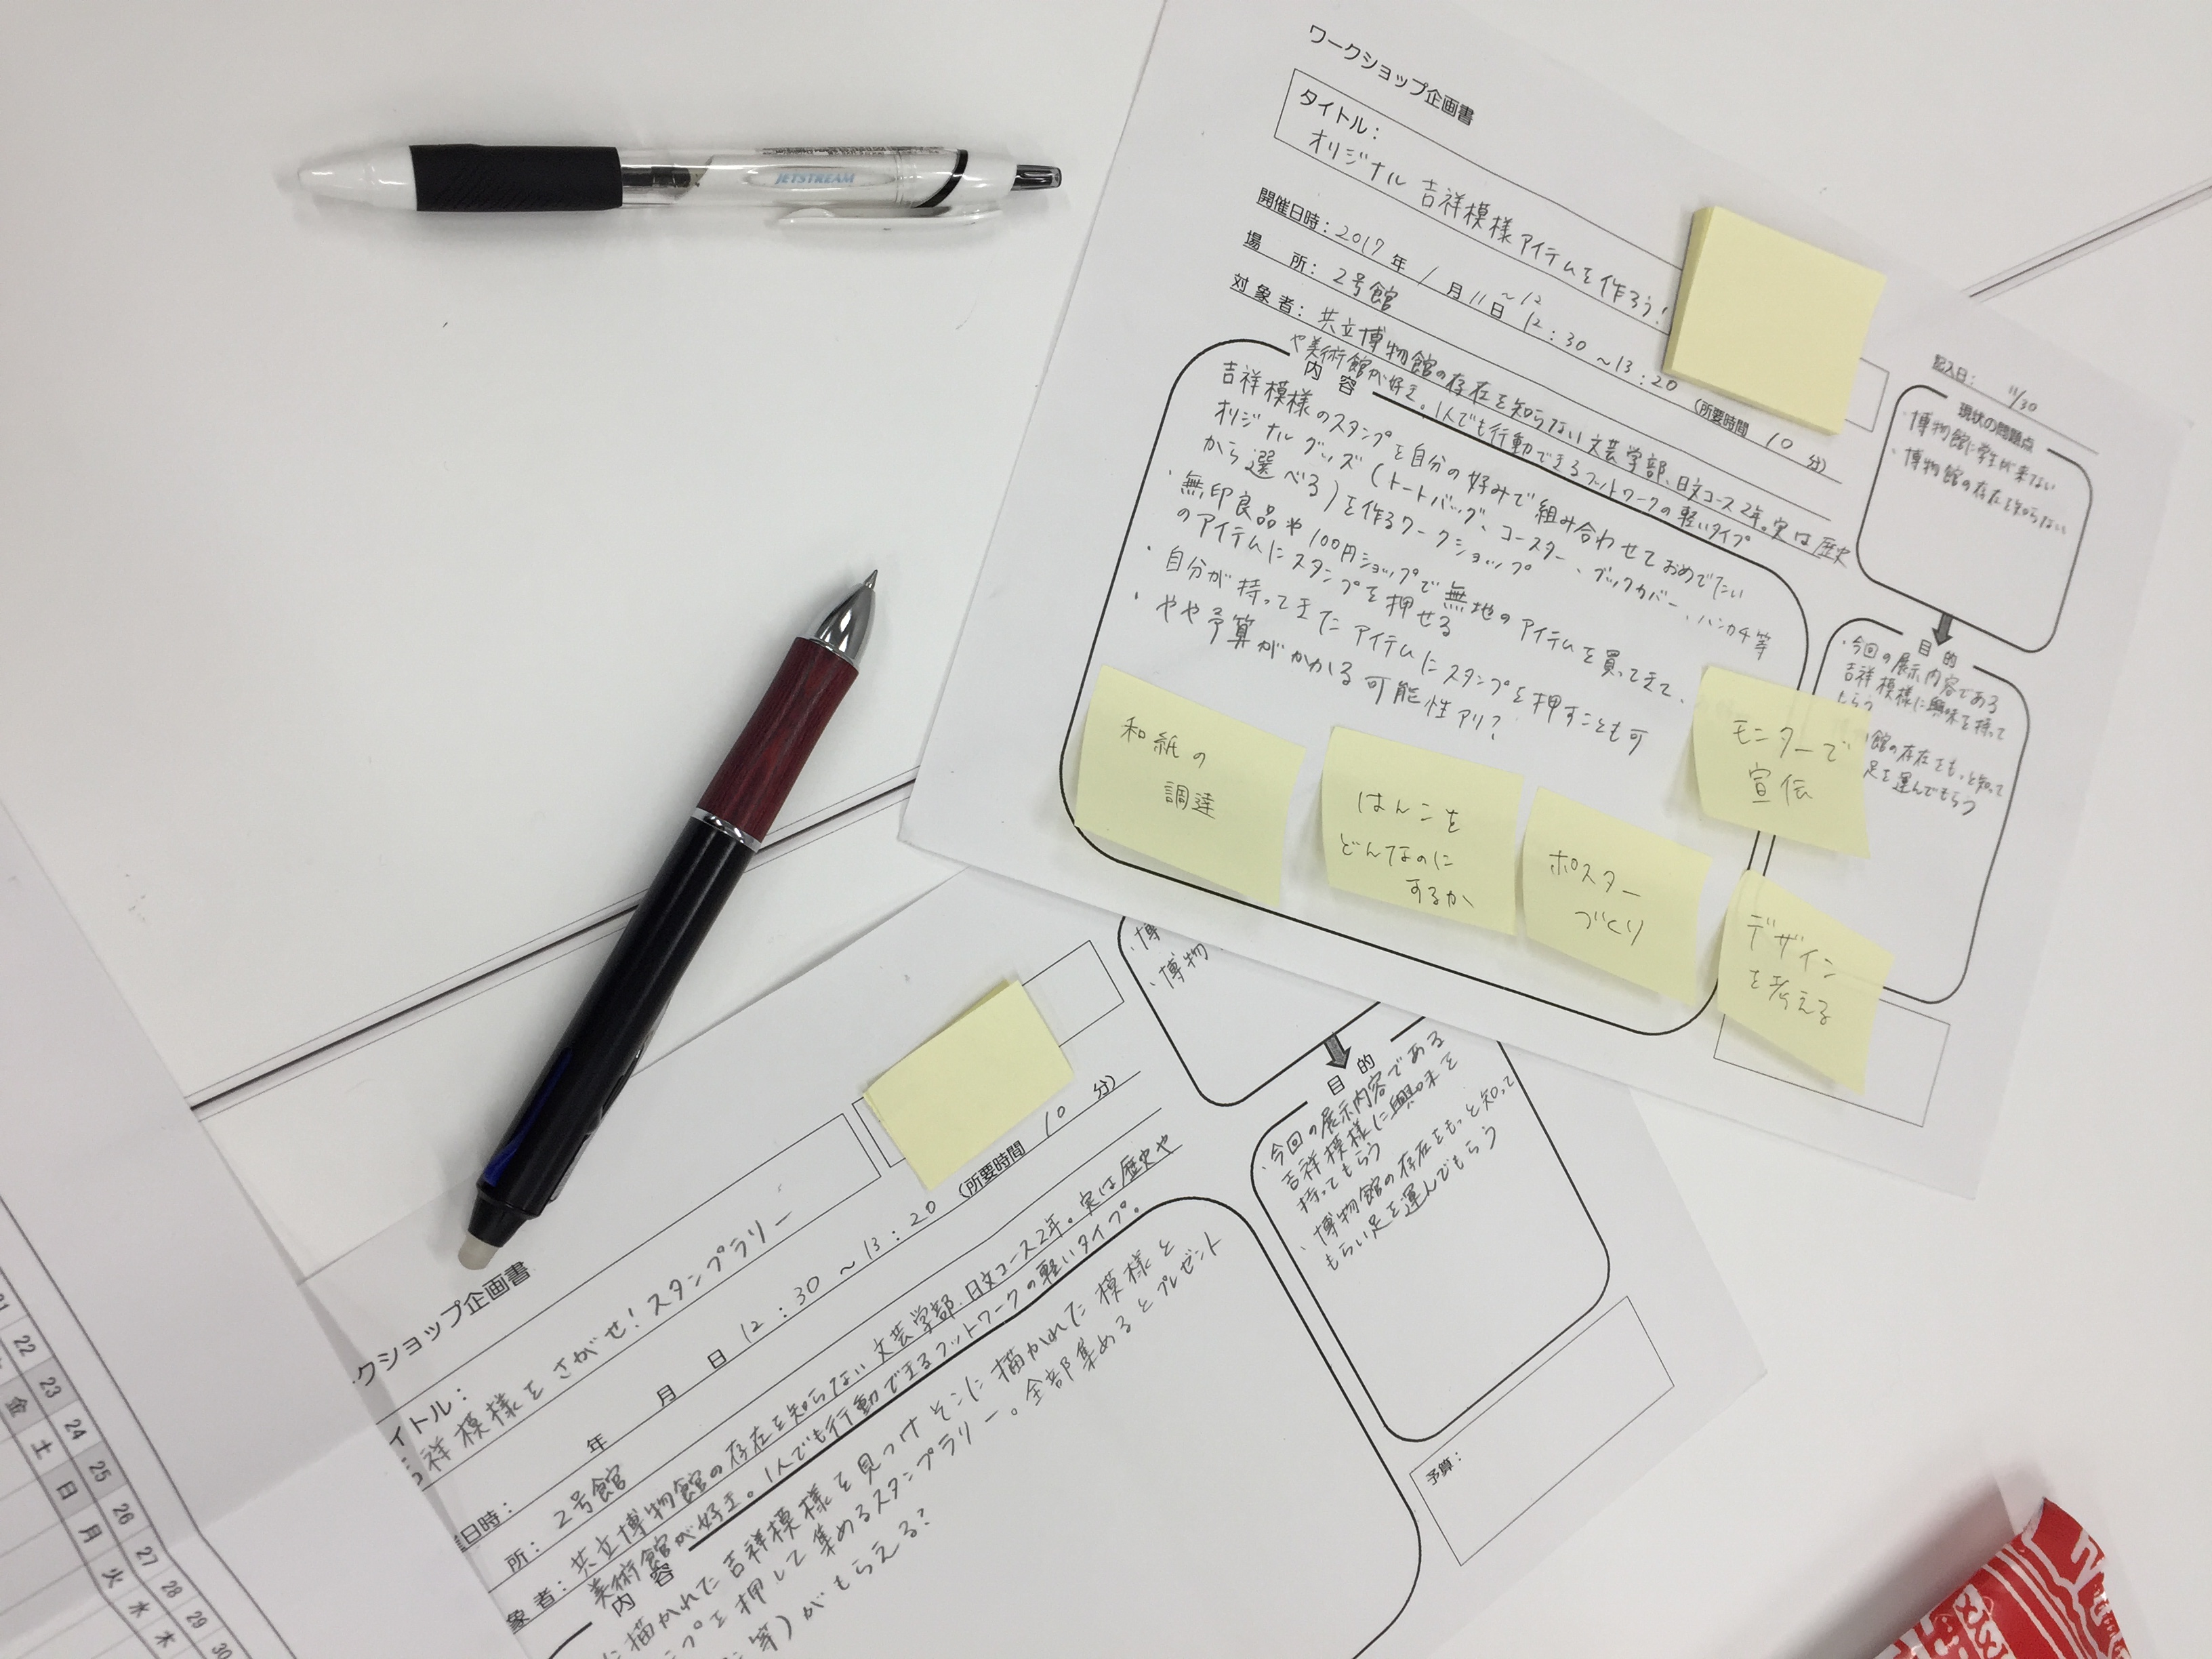 JETSTREAM
ワークショップ企画書
タイトル：
オリジナル 吉祥模様アイテムを作ろう！
開催日時：2017年 1月11日～12 12：30～13：20 （所要時間 10 分）
場 所：2号館
対象者：共立博物館の存在を知らない文芸学部、日文コース2年。実は歴史
や美術館が好き。1人でも行動できるフットワークの軽いタイプ
内 容
吉祥模様のスタンプを自分の好みで組み合わせておめでたい
オリジナルグッズ（トートバッグ、コースター、ブックカバー、ハンカチ等
から選べる）を作るワークショップ
・無印良品や100円ショップで無地のアイテムを買ってきて、
のアイテムにスタンプを押せる
・自分が持ってきたアイテムにスタンプを押すことも可
・やや予算がかかる可能性アリ？
和紙の
調達
はんこを
どんなのに
するか
ポスター
づくり
モニターで
宣伝
デザイン
を考える
記入日： 11/30
現状の問題点
・博物館に学生が来てない
・博物館の存在を知らない
目 的
・今回の展示内容である
吉祥模様に興味を持って
もらう
館の存在をもっと知って
足を運んでもらう
クショップ企画書
イトル：
祥模様をさがせ！スタンプラリー
日時： 年 月 日 12：30～13：20 （所要時間 10 分）
所：2号館
象者：共立博物館の存在を知らない文芸学部、日文コース2年。実は歴史や
美術館が好き。1人でも行動できるフットワークの軽いタイプ。
内 容
に描かれた吉祥模様を見つけそこに描かれた模様と
プを押して集めるスタンプラリー。全部集めるとプレゼント
等）がもらえる？
・博
・博物
目 的
・今回の展示内容である
吉祥模様に興味を
持ってもらう
・博物館の存在をもっと知って
もらい足を運んでもらう
予算：
21
22
23 金
24 土
25 日
26 月
27 火
28 水
29 木
30